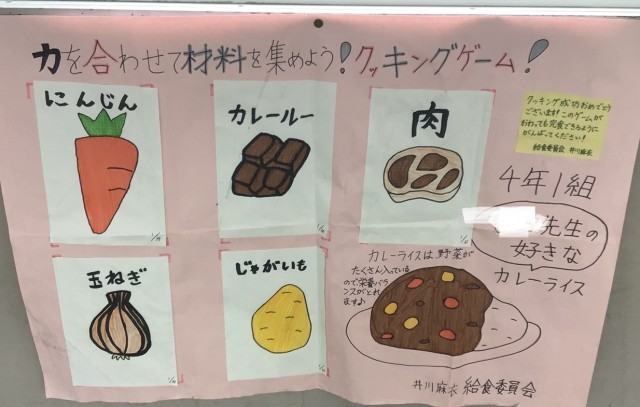 力を合わせて材料を集めよう!クッキングゲーム!
にんじん
カレールー
肉
玉ねぎ
じゃがいも
クッキング成功おめでとう
ございます!このゲームが
おわっても完食できるように
がんばってください!
給食委員会 井川麻衣
4年1組
先生の
好きな
カレーライス
カレーライスは野菜が
たくさん入っている
ので栄養バラ
ンスがとれ
ます♪
井川麻衣 給食委員会